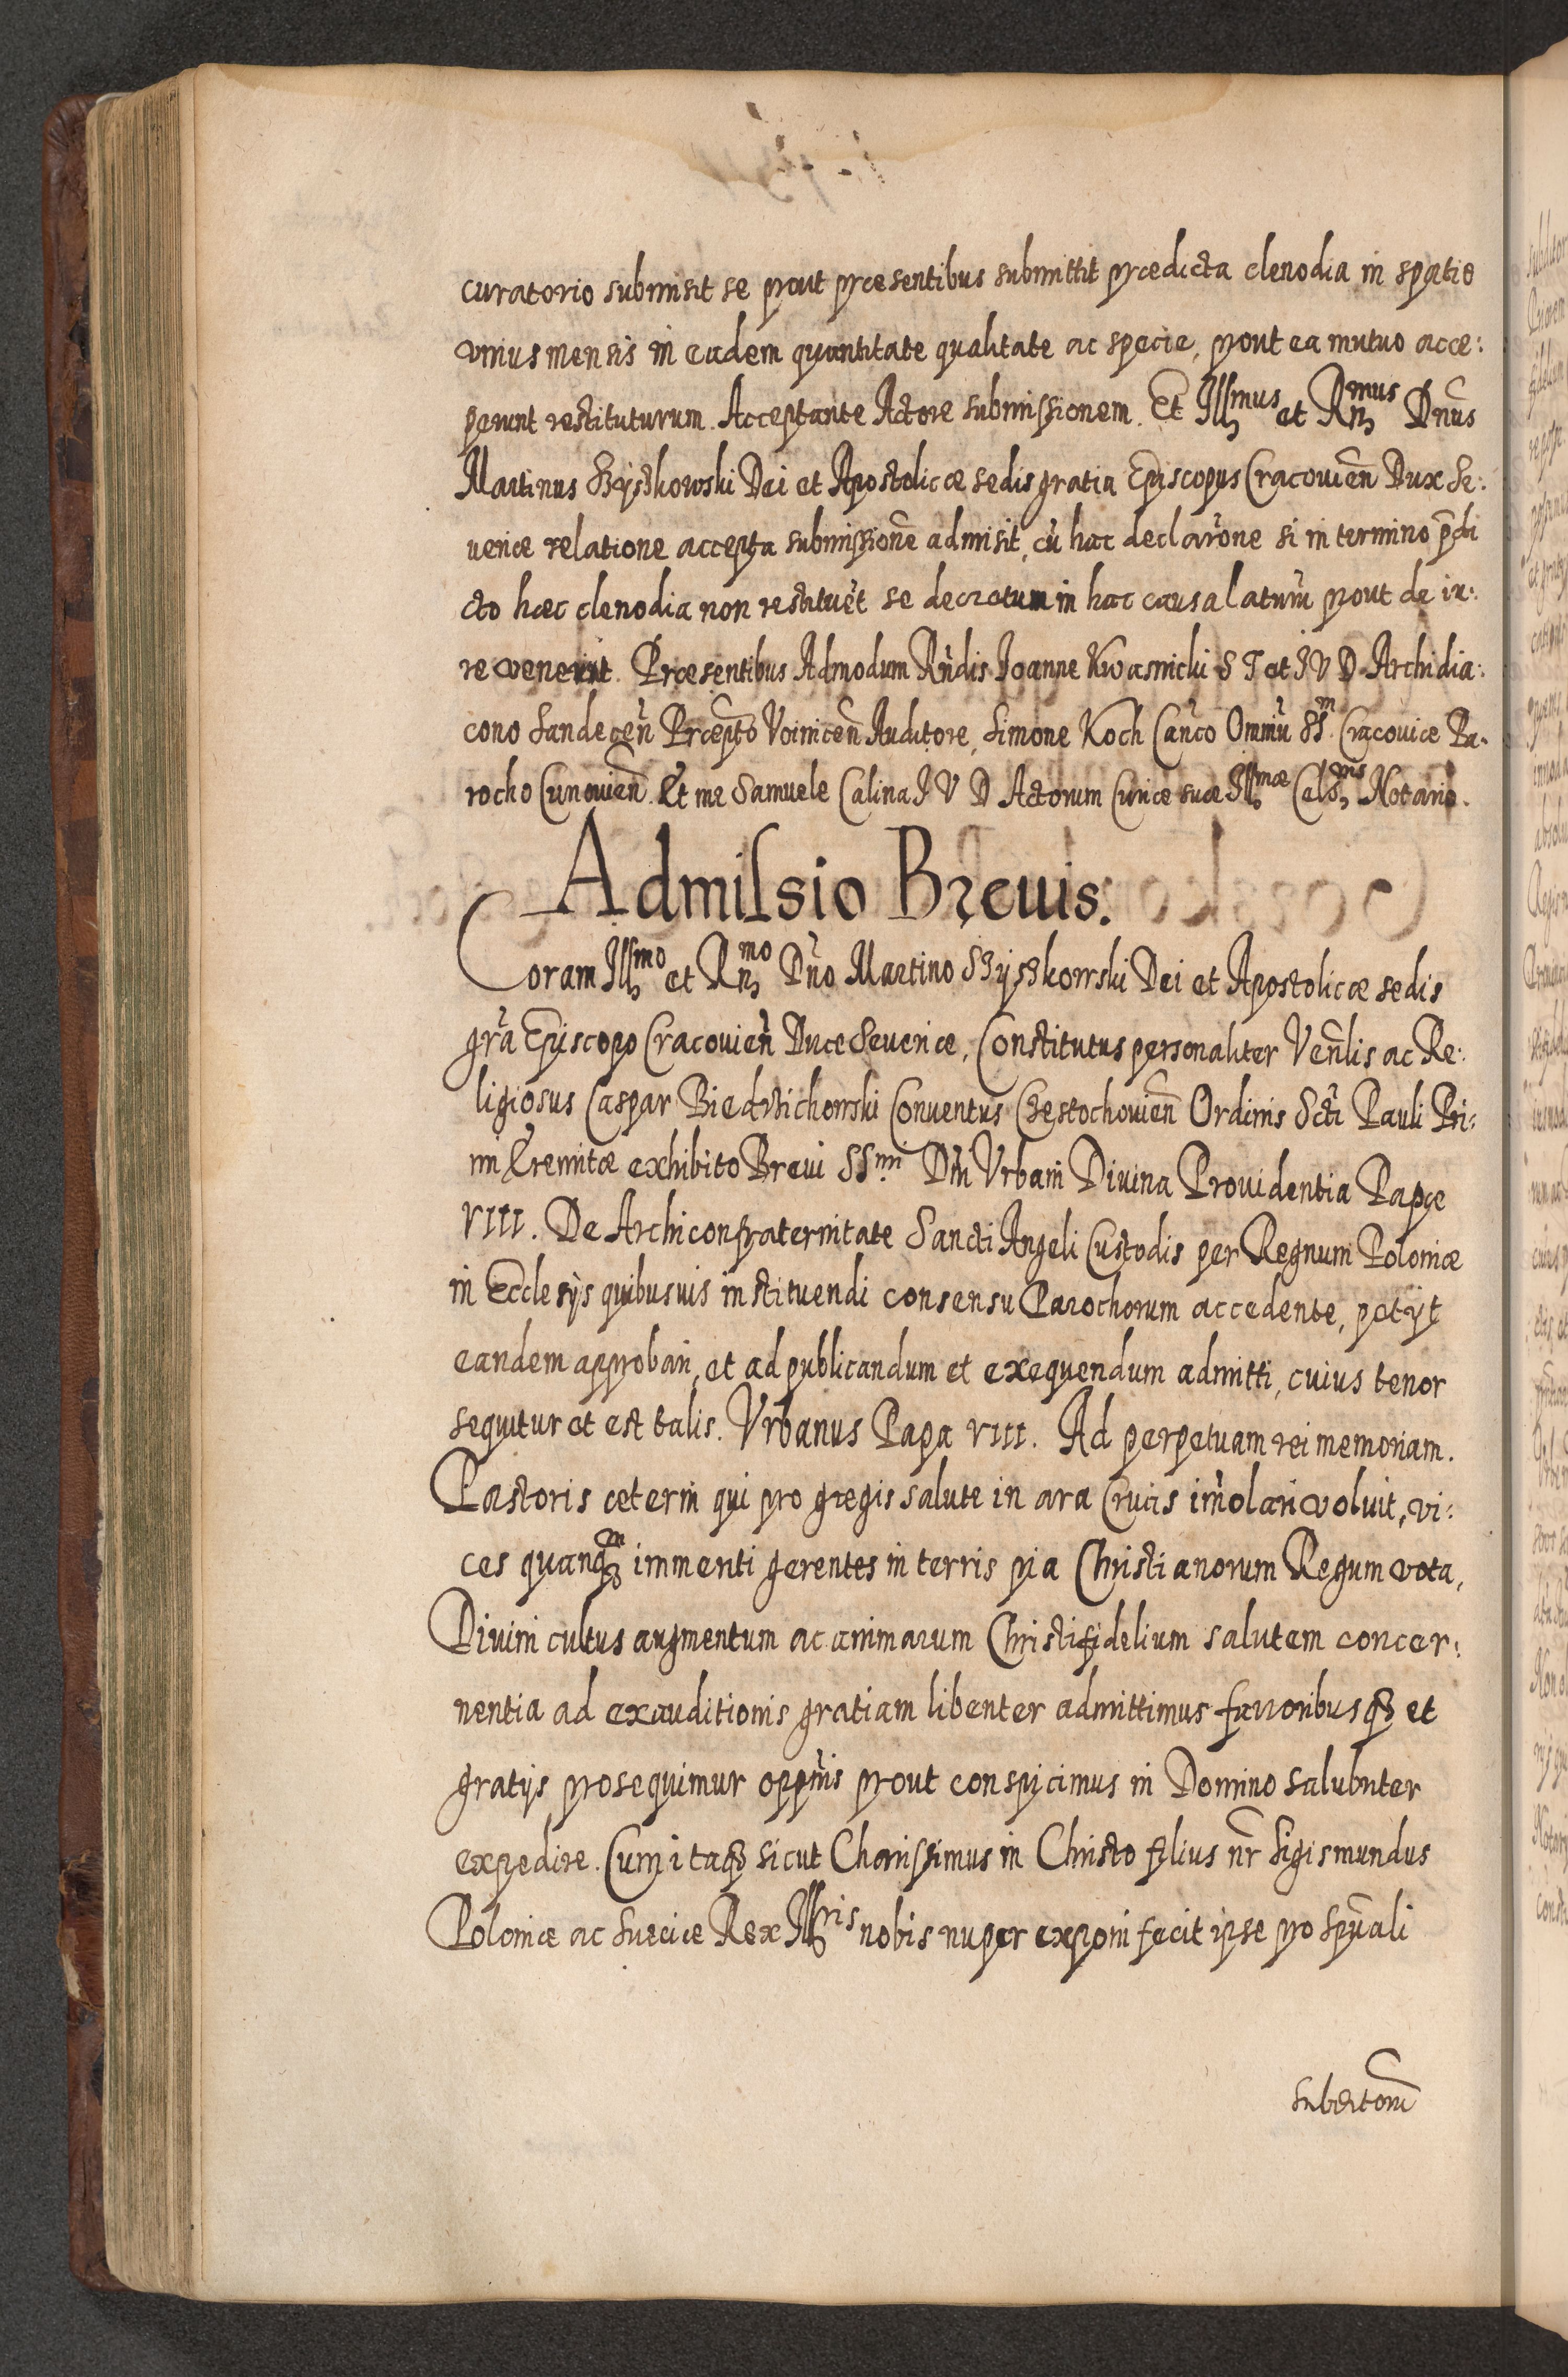 curatorio submisit se prout præsentibus submittit prædicta clenodia in spatio
vnius mensis in eadem quantitate qualitate ac specie, prout ea mutuo acce:
perunt restituturum. Acceptante Actore submissionem. Et Illmus et Rnmus Dnus
Martinus Szyszkowski Dei et Apostolicæ sedis gratia Episcopus Cracouien Dux Se:
ueriæ relatione accepta submissione admisit, cu hac declarone si in termino pdi
cto hæc clenodia non restituet se decretum in hac causa laturu prout de iu:
re venerit. Præsentibus Admodum Rndis Ioanne Kwasnicki S T et I V D Archidia:
cono Sandecen Præpto Voinicen Auditore, Simone Koch Canco Omniu SSm Cracouiæ Pa:
rocho Cunouien. Et me Samuele Calina I V D Actorum Curiæ suæ Illmæ Celsnis Notario.
Admissio Breuis.
Coram Illmo et Rnmo Dno Martino Szyszkowski Dei et Apostolicæ sedis
gra Episcopo Cracouien Duce Seueriæ, Constitutus personaliter Venlis ac Re:
ligiosus Caspar Biedrzichowski Conuentus Czestochouien Ordinis Scti Pauli Pri:
mi Eremitæ exhibito Breui SSmi Dni Vrbani Diuina Prouidentia Papæ
VIII. De Archiconfraternitate Sancti Angeli Custodis per Regnum Poloniæ
in Ecclesijs quibusuis instituendi consensu Parochorum accedente, petijt
eandem approbari, et ad publicandum et exequendum admitti, cuius tenor
sequitur et est talis. Vrbanus Papa VIII. Ad perpetuam rei memoriam.
Pastoris æterni qui pro gregis salute in ara Crucis imolari voluit, vi:
ces quanqm immenti gerentes in terris pia Christianorum Regum vota,
Diuini cultus augmentum ac animarum Christifidelium salutem concer:
nentia ad exauditionis gratiam libenter admittimus fauoribusq et
gratijs prosequimur oppnis prout conspicimus in Domino salubriter
expedire. Cum itaq sicut Charissimus in Christo filius nr Sigismundus
Poloniæ ac Sueciæ Rex Illris nobis nuper exponi fecit ipse pro spuali